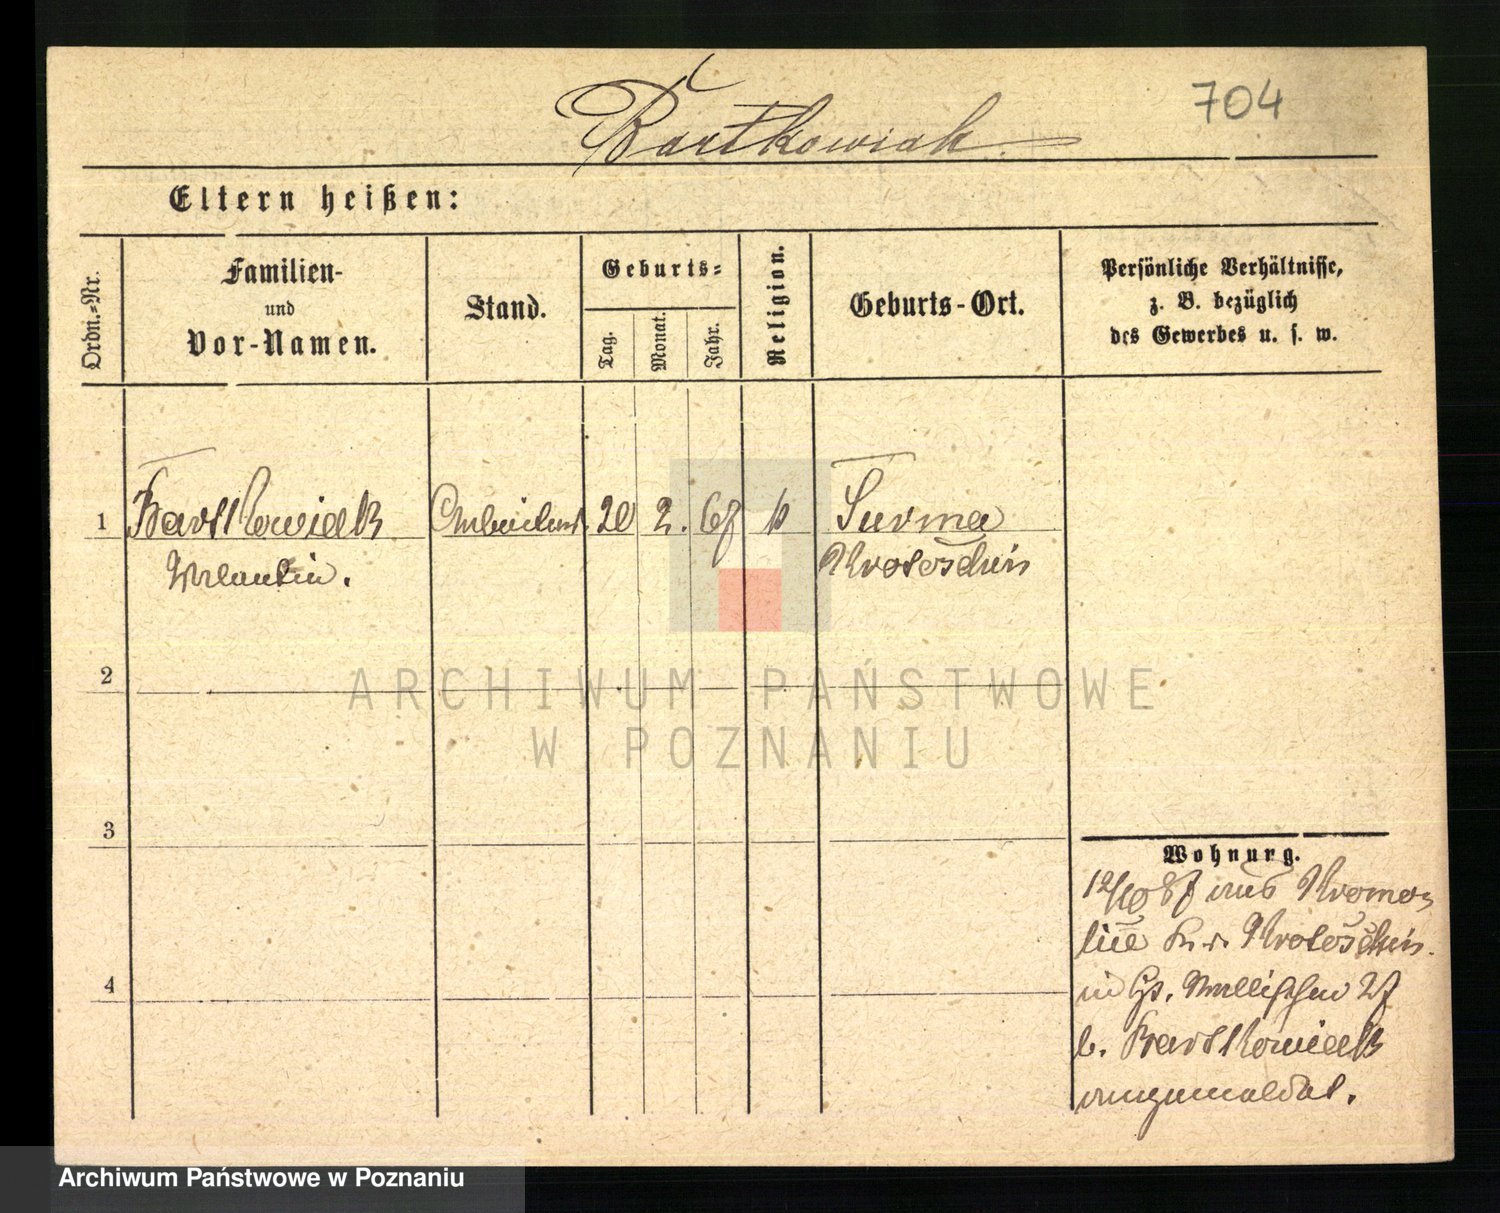 Bartkowiak
704
Eltern heißen:
Ordn.-Nr.
Familien-
und
Vor-Namen.
Stand.
Geburts-
Tag.
Monat.
Jahr.
Religion.
Geburts-Ort.
Persönliche Verhältnisse,
z. B. bezüglich
des Gewerbes u. s. w.
1
Bartkowiak
Valentin.
20
2.
67
k
Surma
Krotoschin
2
3
4
Wohnung.
12/10 87 aus
Kr. Krotoschin.
in Gr. 27
b. Bartkowiak
angemeldet.
ARCHIWUM PAŃSTWOWE
W POZNANIU
Archiwum Państwowe w Poznaniu